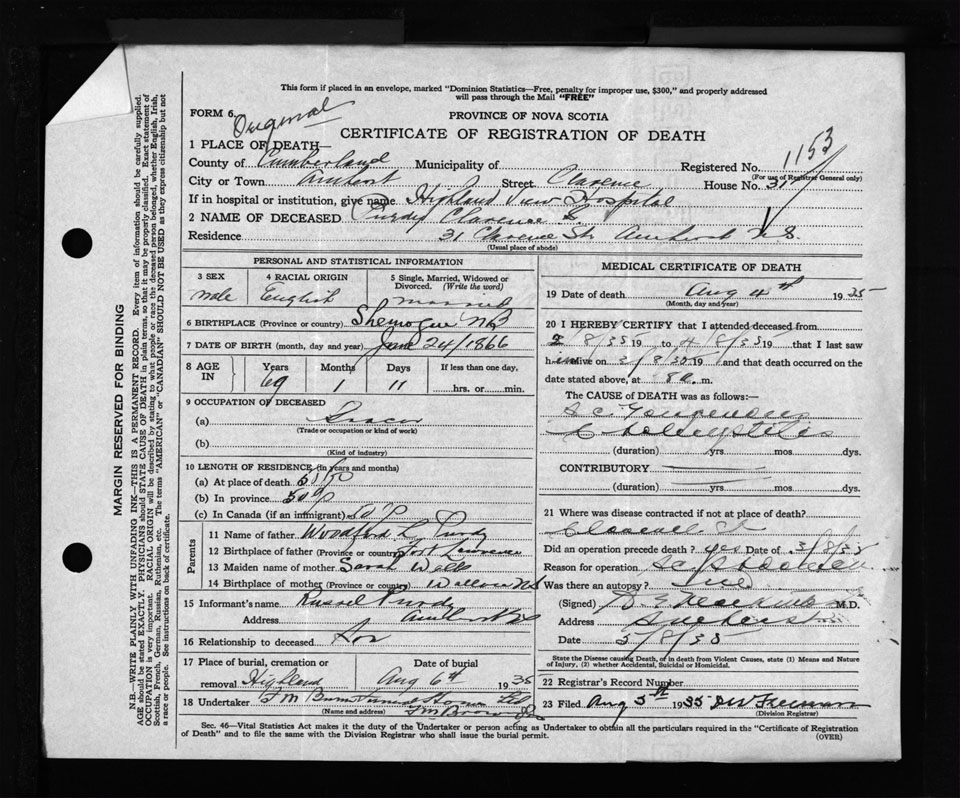 This form if placed in an envelope, marked "Dominion Statistics—Free, penalty for improper use, $300," and properly addressed
will pass through the Mail "FREE"
FORM 6.
Original
PROVINCE OF NOVA SCOTIA
CERTIFICATE OF REGISTRATION OF DEATH
1153
1 PLACE OF DEATH—
County of Cumberland Municipality of Registered No.
(For use of Registrar General only)
City or Town Amherst Street Clarence House No. 31
If in hospital or institution, give name Highland View Hospital
2 NAME OF DECEASED Purdy Clarence
Residence 31 Clarence St. Amherst N.S.
(Usual place of abode)
PERSONAL AND STATISTICAL INFORMATION
3 SEX 4 RACIAL ORIGIN 5 Single, Married, Widowed or Divorced. (Write the word)
male English married
6 BIRTHPLACE (Province or country) Shemogue NB
7 DATE OF BIRTH (month, day and year) June 24/1866
8 AGE IN Years Months Days If less than one day,
69 1 11 hrs. or min.
9 OCCUPATION OF DECEASED
(a) Grocer
(Trade or occupation or kind of work)
(b)
(Kind of industry)
10 LENGTH OF RESIDENCE (in years and months)
(a) At place of death
(b) In province
(c) In Canada (if an immigrant)
Parents
11 Name of father Woodford L. Purdy
12 Birthplace of father (Province or country) Fort Lawrence
13 Maiden name of mother Sarah Wells
14 Birthplace of mother (Province or country) NS
15 Informant's name Russel Purdy
Address Amherst NS
16 Relationship to deceased Son
17 Place of burial, cremation or removal Highland Date of burial Aug 6th 1935
18 Undertaker
(Name and address)
MEDICAL CERTIFICATE OF DEATH
19 Date of death Aug 4th 1935
(Month, day and year)
20 I HEREBY CERTIFY that I attended deceased from
2/8/35 19 to 4/8/35 19 that I last saw
him alive on 3/8/35 19 and that death occurred on the
date stated above, at 8 a. m.
The CAUSE of DEATH was as follows:—
Ac. Gangrenous
Cholecystitis
(duration) yrs. mos. dys.
CONTRIBUTORY
(duration) yrs. mos. dys.
21 Where was disease contracted if not at place of death?
Did an operation precede death? yes Date of 3/8/35
Reason for operation
Was there an autopsy?
(Signed) M.D.
Address Amherst
Date 5/8/35
State the Disease causing Death, or in death from Violent Causes, state (1) Means and Nature of Injury, (2) whether Accidental, Suicidal or Homicidal.
22 Registrar's Record Number
23 Filed Aug 5th 1935
(Division Registrar)
Sec. 46—Vital Statistics Act makes it the duty of the Undertaker or person acting as Undertaker to obtain all the particulars required in the "Certificate of Registration
of Death" and to file the same with the Division Registrar who shall issue the burial permit.
(OVER)
MARGIN RESERVED FOR BINDING
N.B.—WRITE PLAINLY WITH UNFADING INK—THIS IS A PERMANENT RECORD. Every item of information should be carefully supplied.
AGE should be stated EXACTLY. PHYSICIANS should STATE CAUSE OF DEATH in plain terms, so that it may be properly classified. Exact statement of
OCCUPATION is very important. RACIAL ORIGIN will be described by stating to what people or race the deceased person belonged, whether English, Irish,
Scottish, French, German, Russian, Ruthenian, etc. The terms "AMERICAN" or "CANADIAN" SHOULD NOT BE USED as they express citizenship but not
a race or people. See instructions on back of certificate.